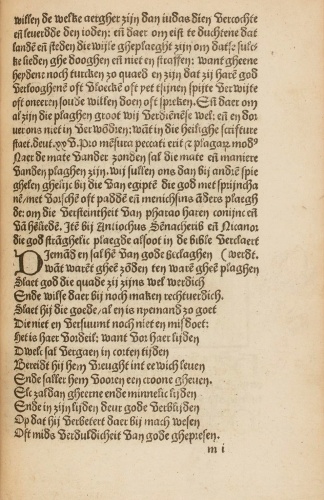 willen de welke aergher zijn dan iudas dien vercochte
eñ leuerdde den ioden: eñ daer om eist te duchtene dat
landē eñ steden die wijse gheplaeght zijn om datse sulc-
ke lieden ghe dooghen eñ niet en straffen: want gheene
heydenē noch turcken zo quaed en zijn dat zij harē god
verlooghenē oft vloeckē oft yet tsijnen spijte verwijte
oft oneeren soude willen doen oft spreken. Eñ daer om
al zijn die plaghen groot wij verdienēse wel: eñ en dor
uer ons niet in verwōdren: wāt in die heilighe scrifture
staet. deut. xxv. Pro mēsura peccati erit & plagarū modᵒ
Naer de mate vander zonden sal die mate eñ maniere
vanden plaghen zijn. wij sullen ons dan bij andrē spie
ghelen ghelijc bij die van egiptē die god met sprijncha
nē, met vorschē oft paddē eñ menichsins āders plaegh
de: om die versteintheit van pharao haren conijnc eñ
vā hēliedē. Itē bij Antiochus Senacherib eñ Nicanor
die god strāghelic plaegde alsoot in die bible verclaert
Iemād en sal hē van gode beclaghen (werdt.
wāt warēt gheē zōdē ten warē gheē plaghen
Slaet god die quade zij zijns wel weerdich
Ende wilse daer bij noch maken rechtuerdich.
Slaet hij die goede, al en is nyemand zo goet
Die niet en versuumt noch niet en misdoet:
Het is haer vordeil: want vor haer lijden
Dwelc sal vergaen in corten tijden
Bereidt hij hem vreught int eewich leuen
Ende saller hem vooren een croone gheuen.
Elc zal dan gheerne ende minnelic lijden
Ende in zijn lijden deur gode verblijden
Op dat hij verbetert daer bij mach wesen
Oft mids verduldicheit van gode ghepresen.
m i